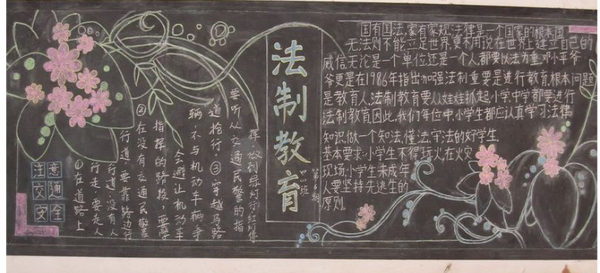 法制教育
国有国法,家有家规,法律是一个国家的根本
无法则不能立足世界,更不用说在世界上建立自己的
威信无论是一个单位还是一个人都要以法为重邓小平爷
爷更是在1986年指出加强法制重要是进行教育根本问题
是教育人,法制教育要从娃娃抓起小学中学都要进行
法制教育因此,我们年在中小学生都应认真学习法律
知识做一个知法,懂法,守法的好学生
基本要求小学生不得玩火在火灾
现场,小学生未成年
人要坚持先逃生的
原则
注意
交通
安全
①在道路上
行走,要走人
行道,没有人
行道,要靠路边行
②在没有交通民警
指挥的路段,要学
会避让机动车
辆,不与机动车辆争
道抢行,③穿越马路
要听从交通民警的指
挥,做到绿灯行